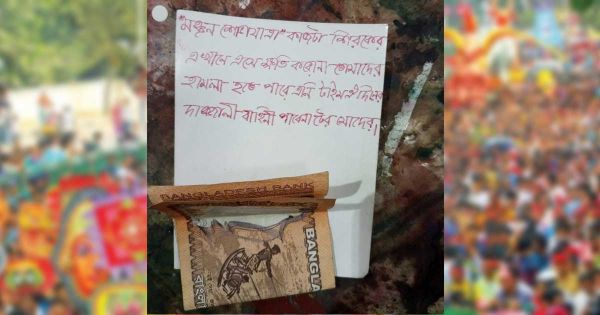 "মঙ্গল শোভাযাত্রা" কাজটা শিরকের
এখানে এসে ক্ষতি করোনা তোমাদের
হামলা হতে পারে এনি টাইম
দাজ্জালী বাহিনী পাবেনা টের মোদের।
BANGLADESH BANK
BANGLA
বাংলা